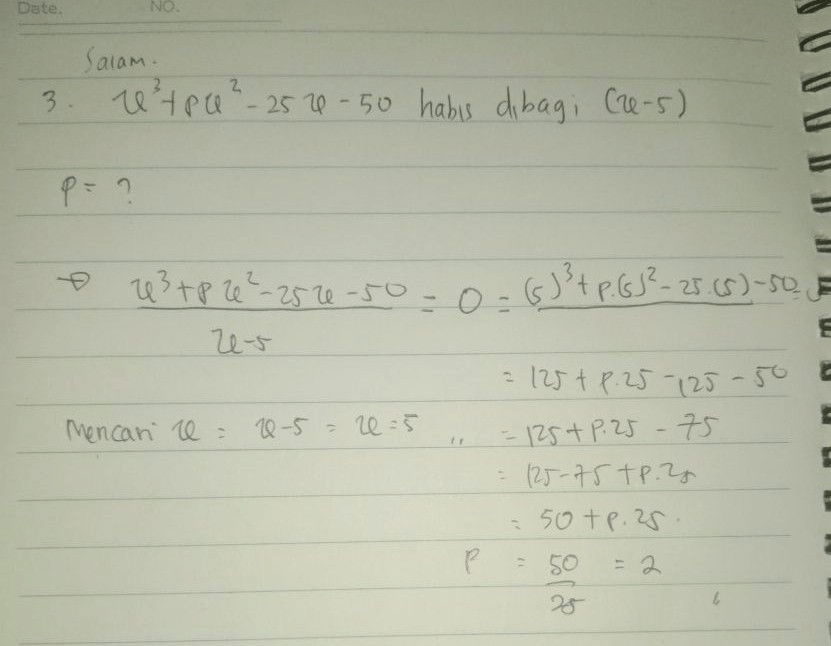 Date. NO.
Salam.
3. x³+px²-25x-50 habis dibagi (x-5)
p= ?
→ x³+px²-25x-50 = 0 = (5)³+p.(5)²-25.(5)-50=
x-5
= 125+p.25-125-50
Mencari x = x-5 = x=5 ,, = 125+p.25-75
= 125-75+p.25
= 50+p.25.
p = 50 = 2
25